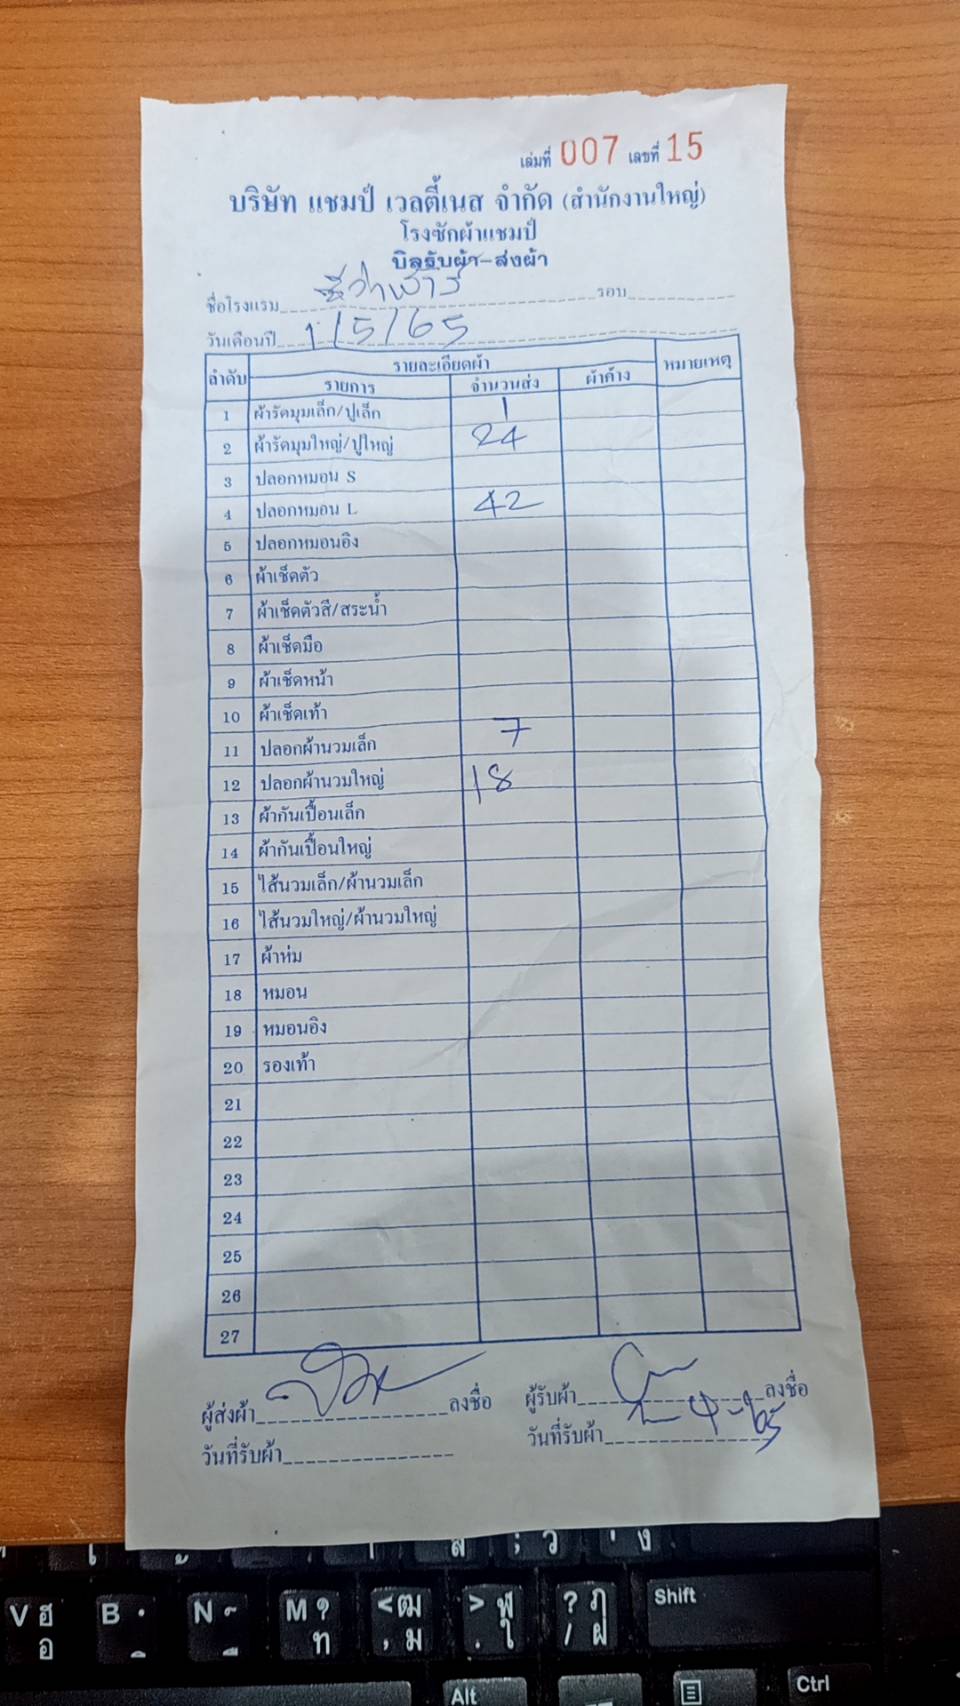 เล่มที่ 007 เลขที่ 15
บริษัท แชมป์ เวลตี้เนส จำกัด (สำนักงานใหญ่)
โรงซักผ้าแชมป์
บิลรับผ้า-ส่งผ้า
ชื่อโรงแรม รอบ
วันเดือนปี 1/5/65
ลำดับ รายละเอียดผ้า หมายเหตุ
รายการ จำนวนส่ง ผ้าค้าง
1 ผ้ารัดมุมเล็ก/ปูเล็ก 1
2 ผ้ารัดมุมใหญ่/ปูใหญ่ 24
3 ปลอกหมอน S
4 ปลอกหมอน L 42
5 ปลอกหมอนอิง
6 ผ้าเช็ดตัว
7 ผ้าเช็ดตัวสี/สระน้ำ
8 ผ้าเช็ดมือ
9 ผ้าเช็ดหน้า
10 ผ้าเช็ดเท้า
11 ปลอกผ้านวมเล็ก 7
12 ปลอกผ้านวมใหญ่ 18
13 ผ้ากันเปื้อนเล็ก
14 ผ้ากันเปื้อนใหญ่
15 ไส้นวมเล็ก/ผ้านวมเล็ก
16 ไส้นวมใหญ่/ผ้านวมใหญ่
17 ผ้าห่ม
18 หมอน
19 หมอนอิง
20 รองเท้า
21
22
23
24
25
26
27
ผู้ส่งผ้า ลงชื่อ ผู้รับผ้า ลงชื่อ
วันที่รับผ้า วันที่รับผ้า
V ฮ อ B N M ? ท < ฒ , ม > ฬ . ใ ? ฦ / ฝ Shift
Alt Ctrl